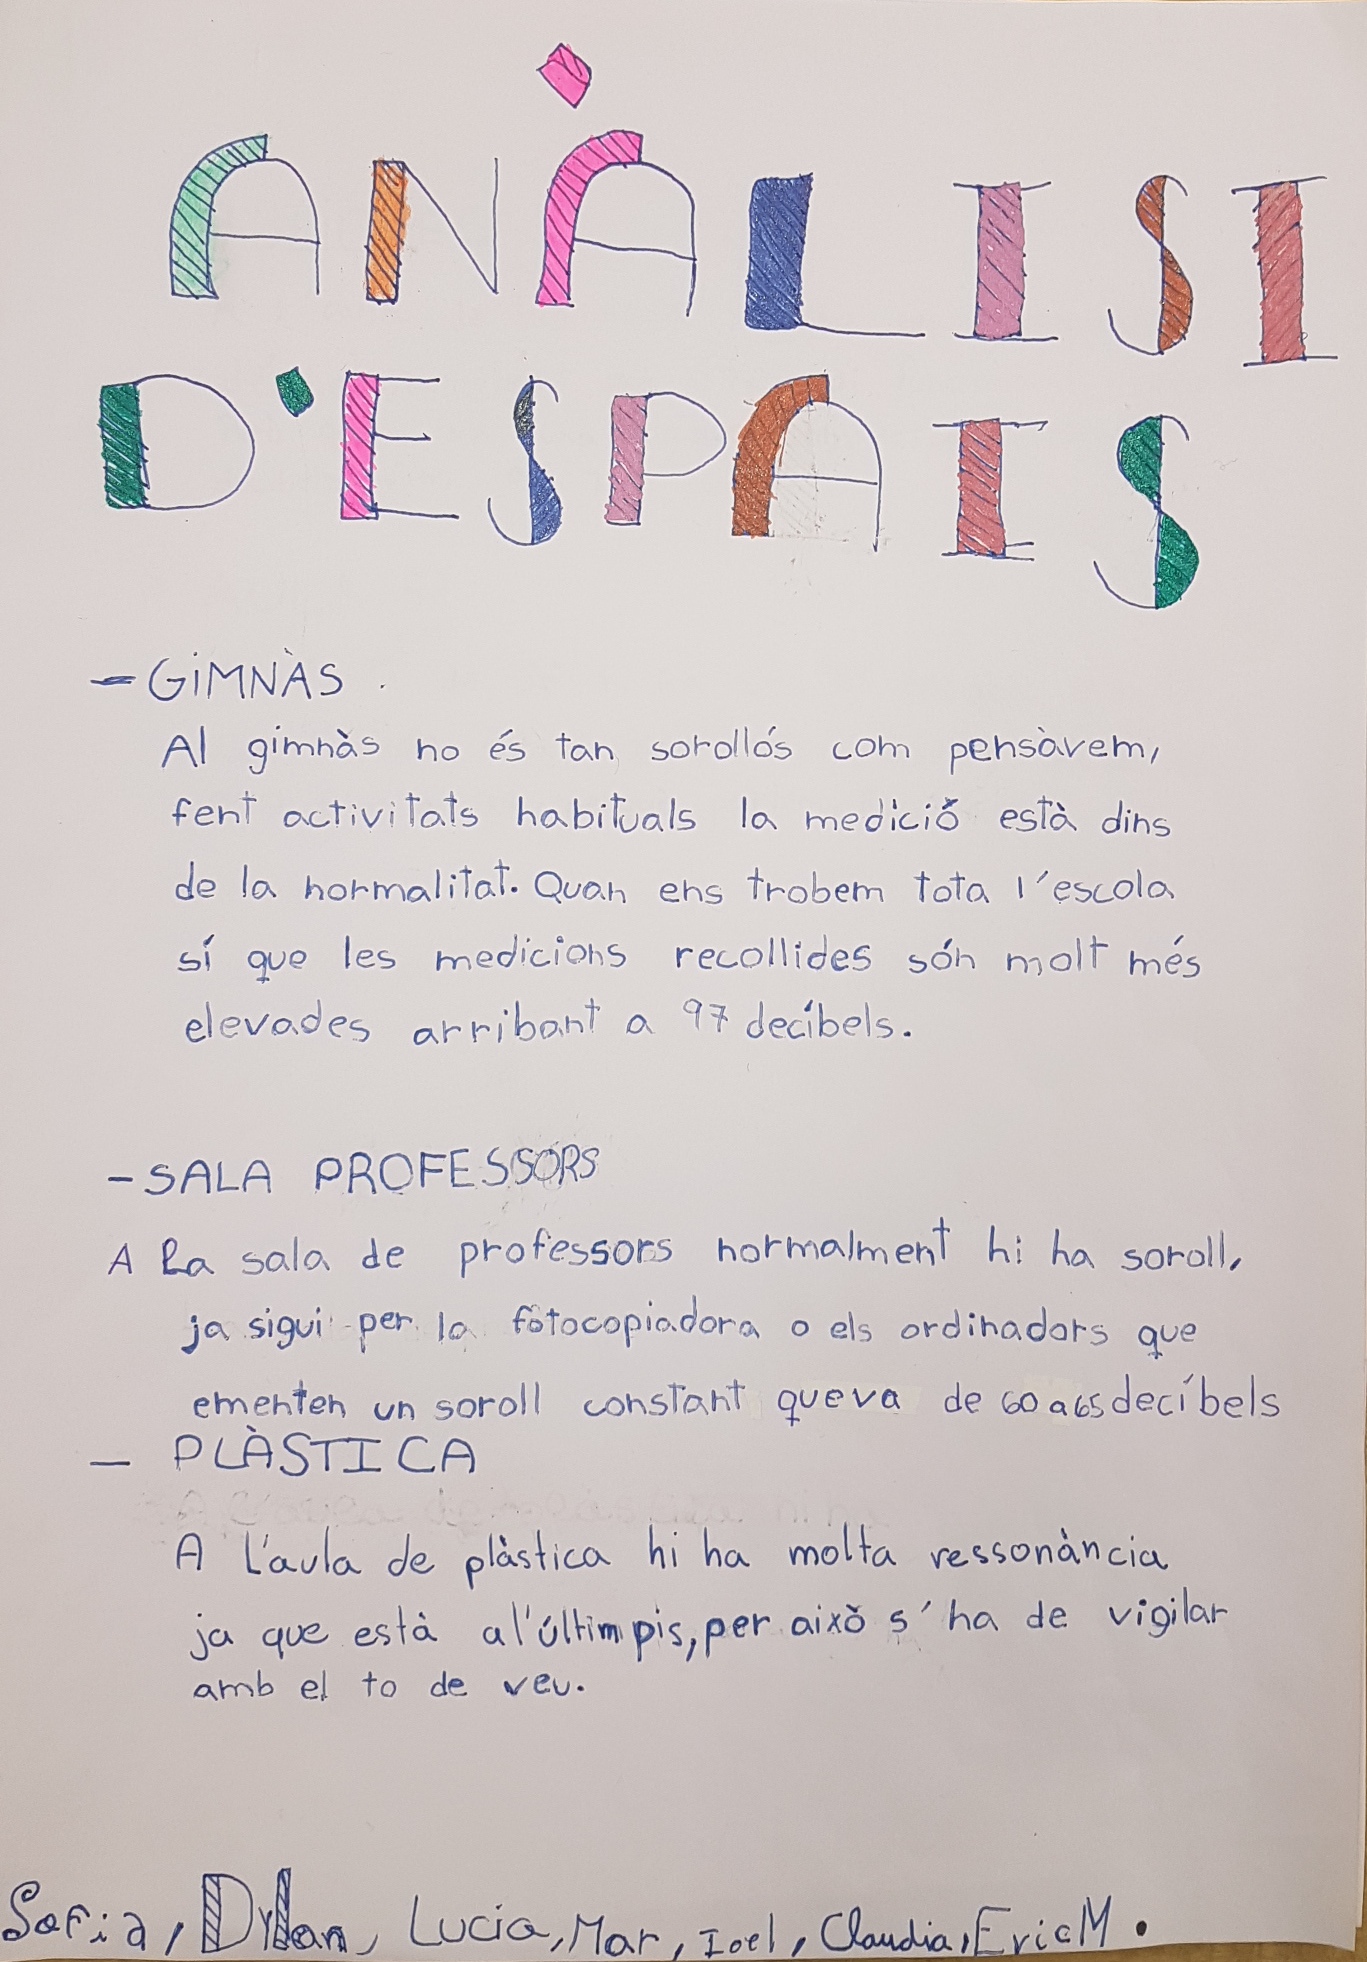 ANÀLISI
D'ESPAIS
- GiMNÀS
Al gimnàs no és tan sorollós com pensàvem,
fent activitats habituals la medició està dins
de la normalitat. Quan ens trobem tota l'escola
sí que les medicions recollides són molt més
elevades arribant a 97 decíbels.
- SALA PROFESSORS
A la sala de professors normalment hi ha soroll,
ja sigui per la fotocopiadora o els ordinadors que
ementen un soroll constant que va de 60 a 65 decíbels
- PLÀSTICA
A l'aula de plàstica hi ha molta ressonància
ja que està a l'últim pis, per això s'ha de vigilar
amb el to de veu.
Sofia, Dylan, Lucia, Mar, Ioel, Claudia, Eric M.